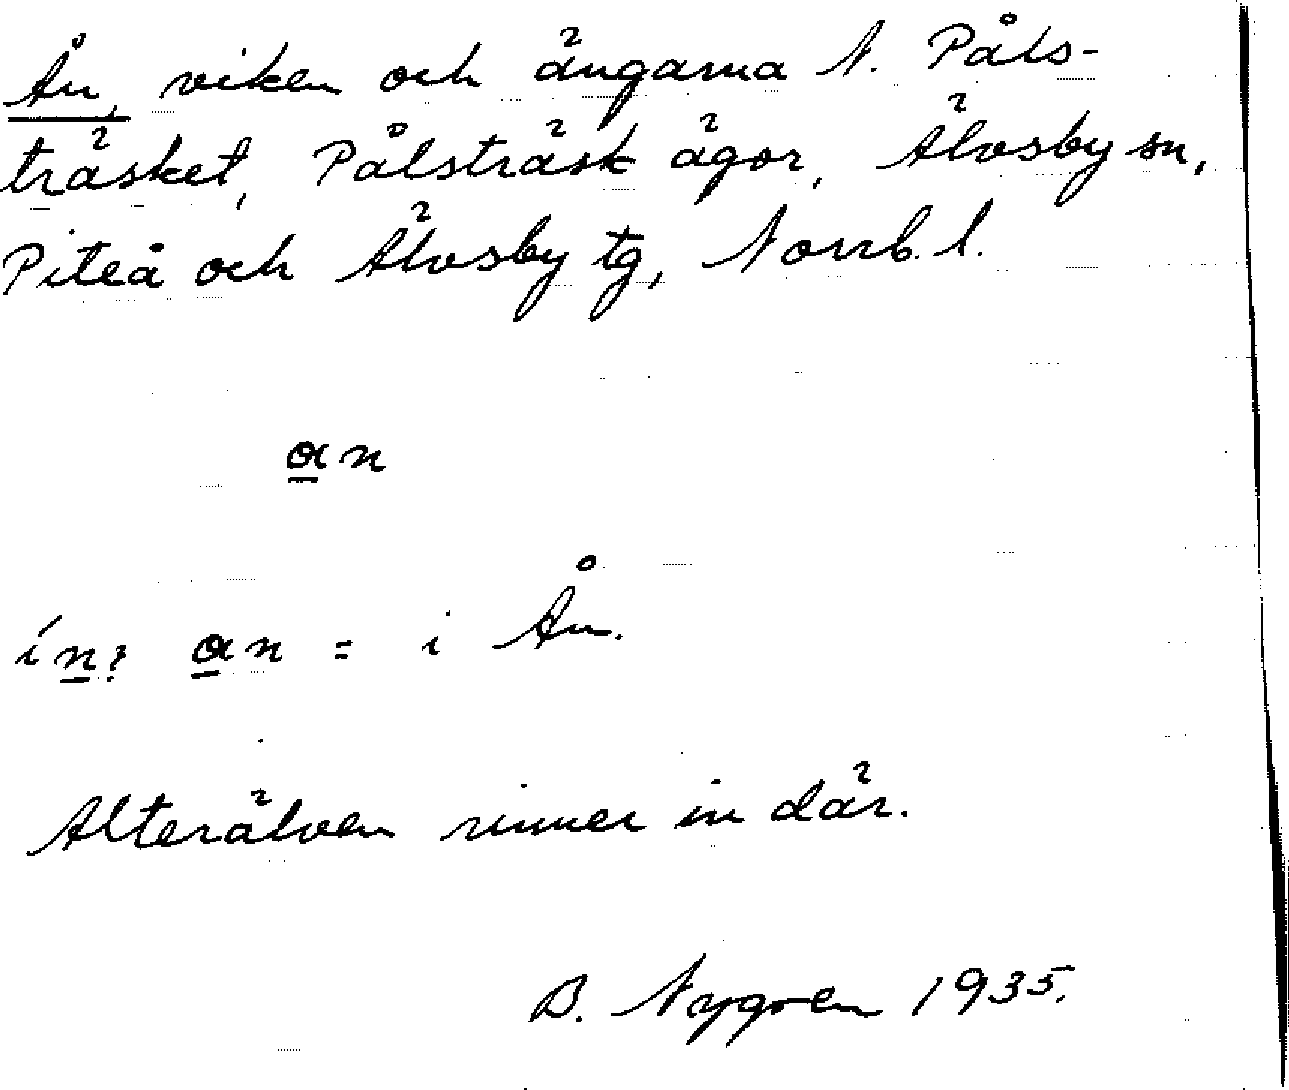 Ån, viken och ängarna N. Påls-
träsket, Pålsträsk ägor, Älvsby sn,
Piteå och Älvsby tg, Norrb. l.
an
ín? an = i Ån.
Alterälven rinner in där.
B. Nygren 1935.